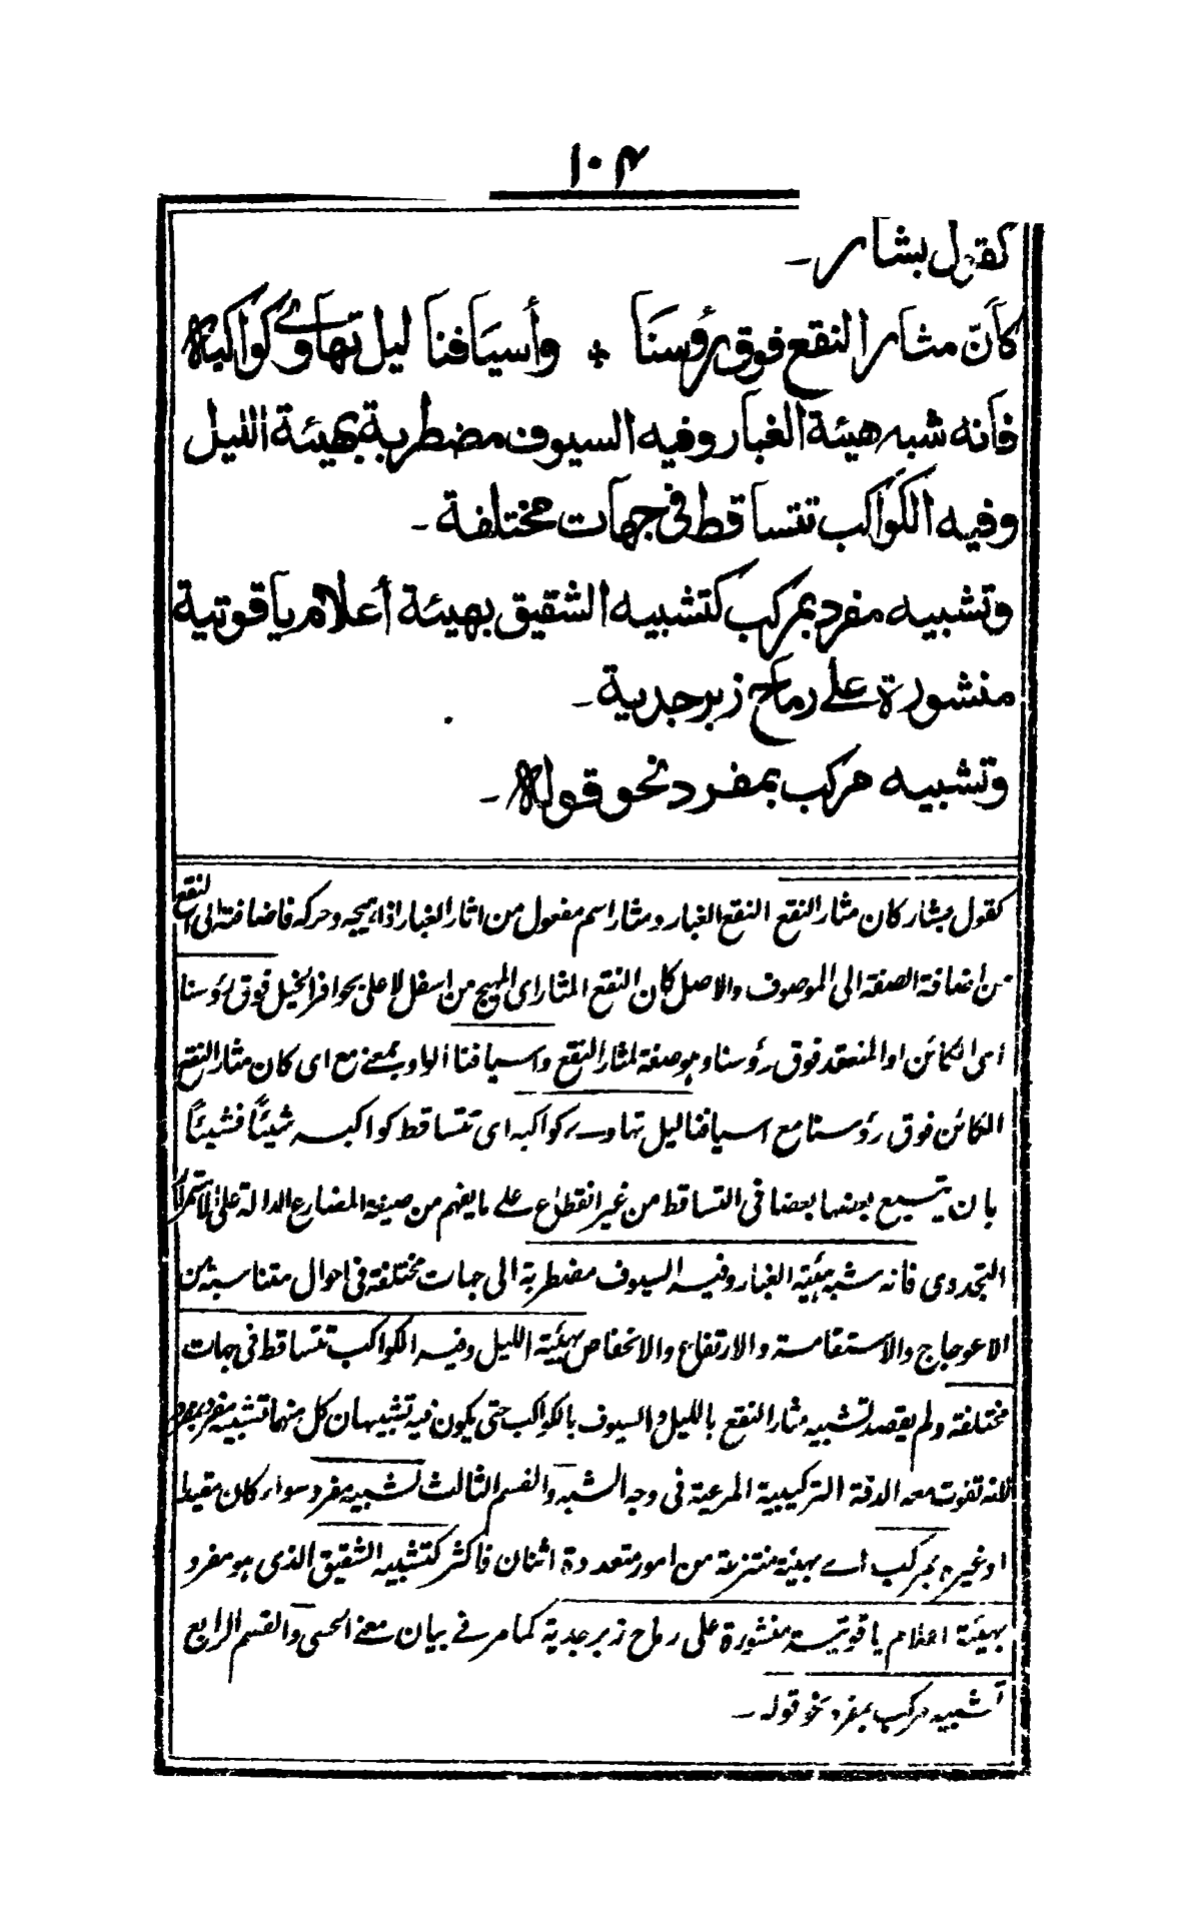 ١٠٤
كقول بشار ـ
كأنّ مثار النقع فوق رؤسنَا * وأسيَافنا ليل تهاوے كواكبه
فأنه شبه هيئة الغبار وفيه السيوف مضطربة بهيئة الليل
وفيه الكواكب تتساقط فى جهات مختلفة ـ
وتشبيه مفرد بمركب كتشبيه الشقيق بهيئة أعلام ياقوتية
منشورة علے رماح زبرجدية ـ
وتشبيه مركب بمفرد نحو قوله ـ
كقول بشار كان مثار النقع النقع الغبار ومثار اسم مفعول من اثار الغبار اذا هيجه وحركه فاضافته الى النقع
من اضافة الصفة الى الموصوف والاصل كان النقع المثار اى المهيج من اسفل لاعلى بحوافر الخيل فوق رؤسنا
اى الكائن او المنعقد فوق رؤسنا وهو صفة لمثار النقع واسيافنا الواو بمعنے مع اى كان مثار النقع
الكائن فوق رؤسنا مع اسيافنا ليل تهاوے كواكبه اى تتساقط كواكبه شيئًا فشيئًا
بان يتبع بعضها بعضا فى التساقط من غير انقطاع علے ما يفهم من صيغة المضارع الدالة على الاستمرار
التجددى فانه شبه هيئة الغبار وفيه السيوف مضطربة الى جهات مختلفة فى احوال متناسبة من
الاعوجاج والاستقامة والارتفاع والانخفاض بهيئة الليل وفيه الكواكب تتساقط فى جهات
مختلفة ولم يقصد تشبيه مثار النقع بالليل والسيوف بالكواكب حتى يكون فيه تشبيهان كل منهما تشبيه مفرد بمفرد
لانه تفوت معه الدقة التركيبية المرعية فى وجه الشبه والقسم الثالث تشبيه مفرد سواء كان مقيدا
او غيره بمركب اے بهيئة منتزعة من امور متعددة اثنان فاكثر كتشبيه الشقيق الذى هو مفرد
بهيئة اعلام ياقوتية منشورة على رماح زبرجدية كما مر فے بيان معنے الحسى والقسم الرابع
تشبيه مركب بمفرد نحو قوله ـ